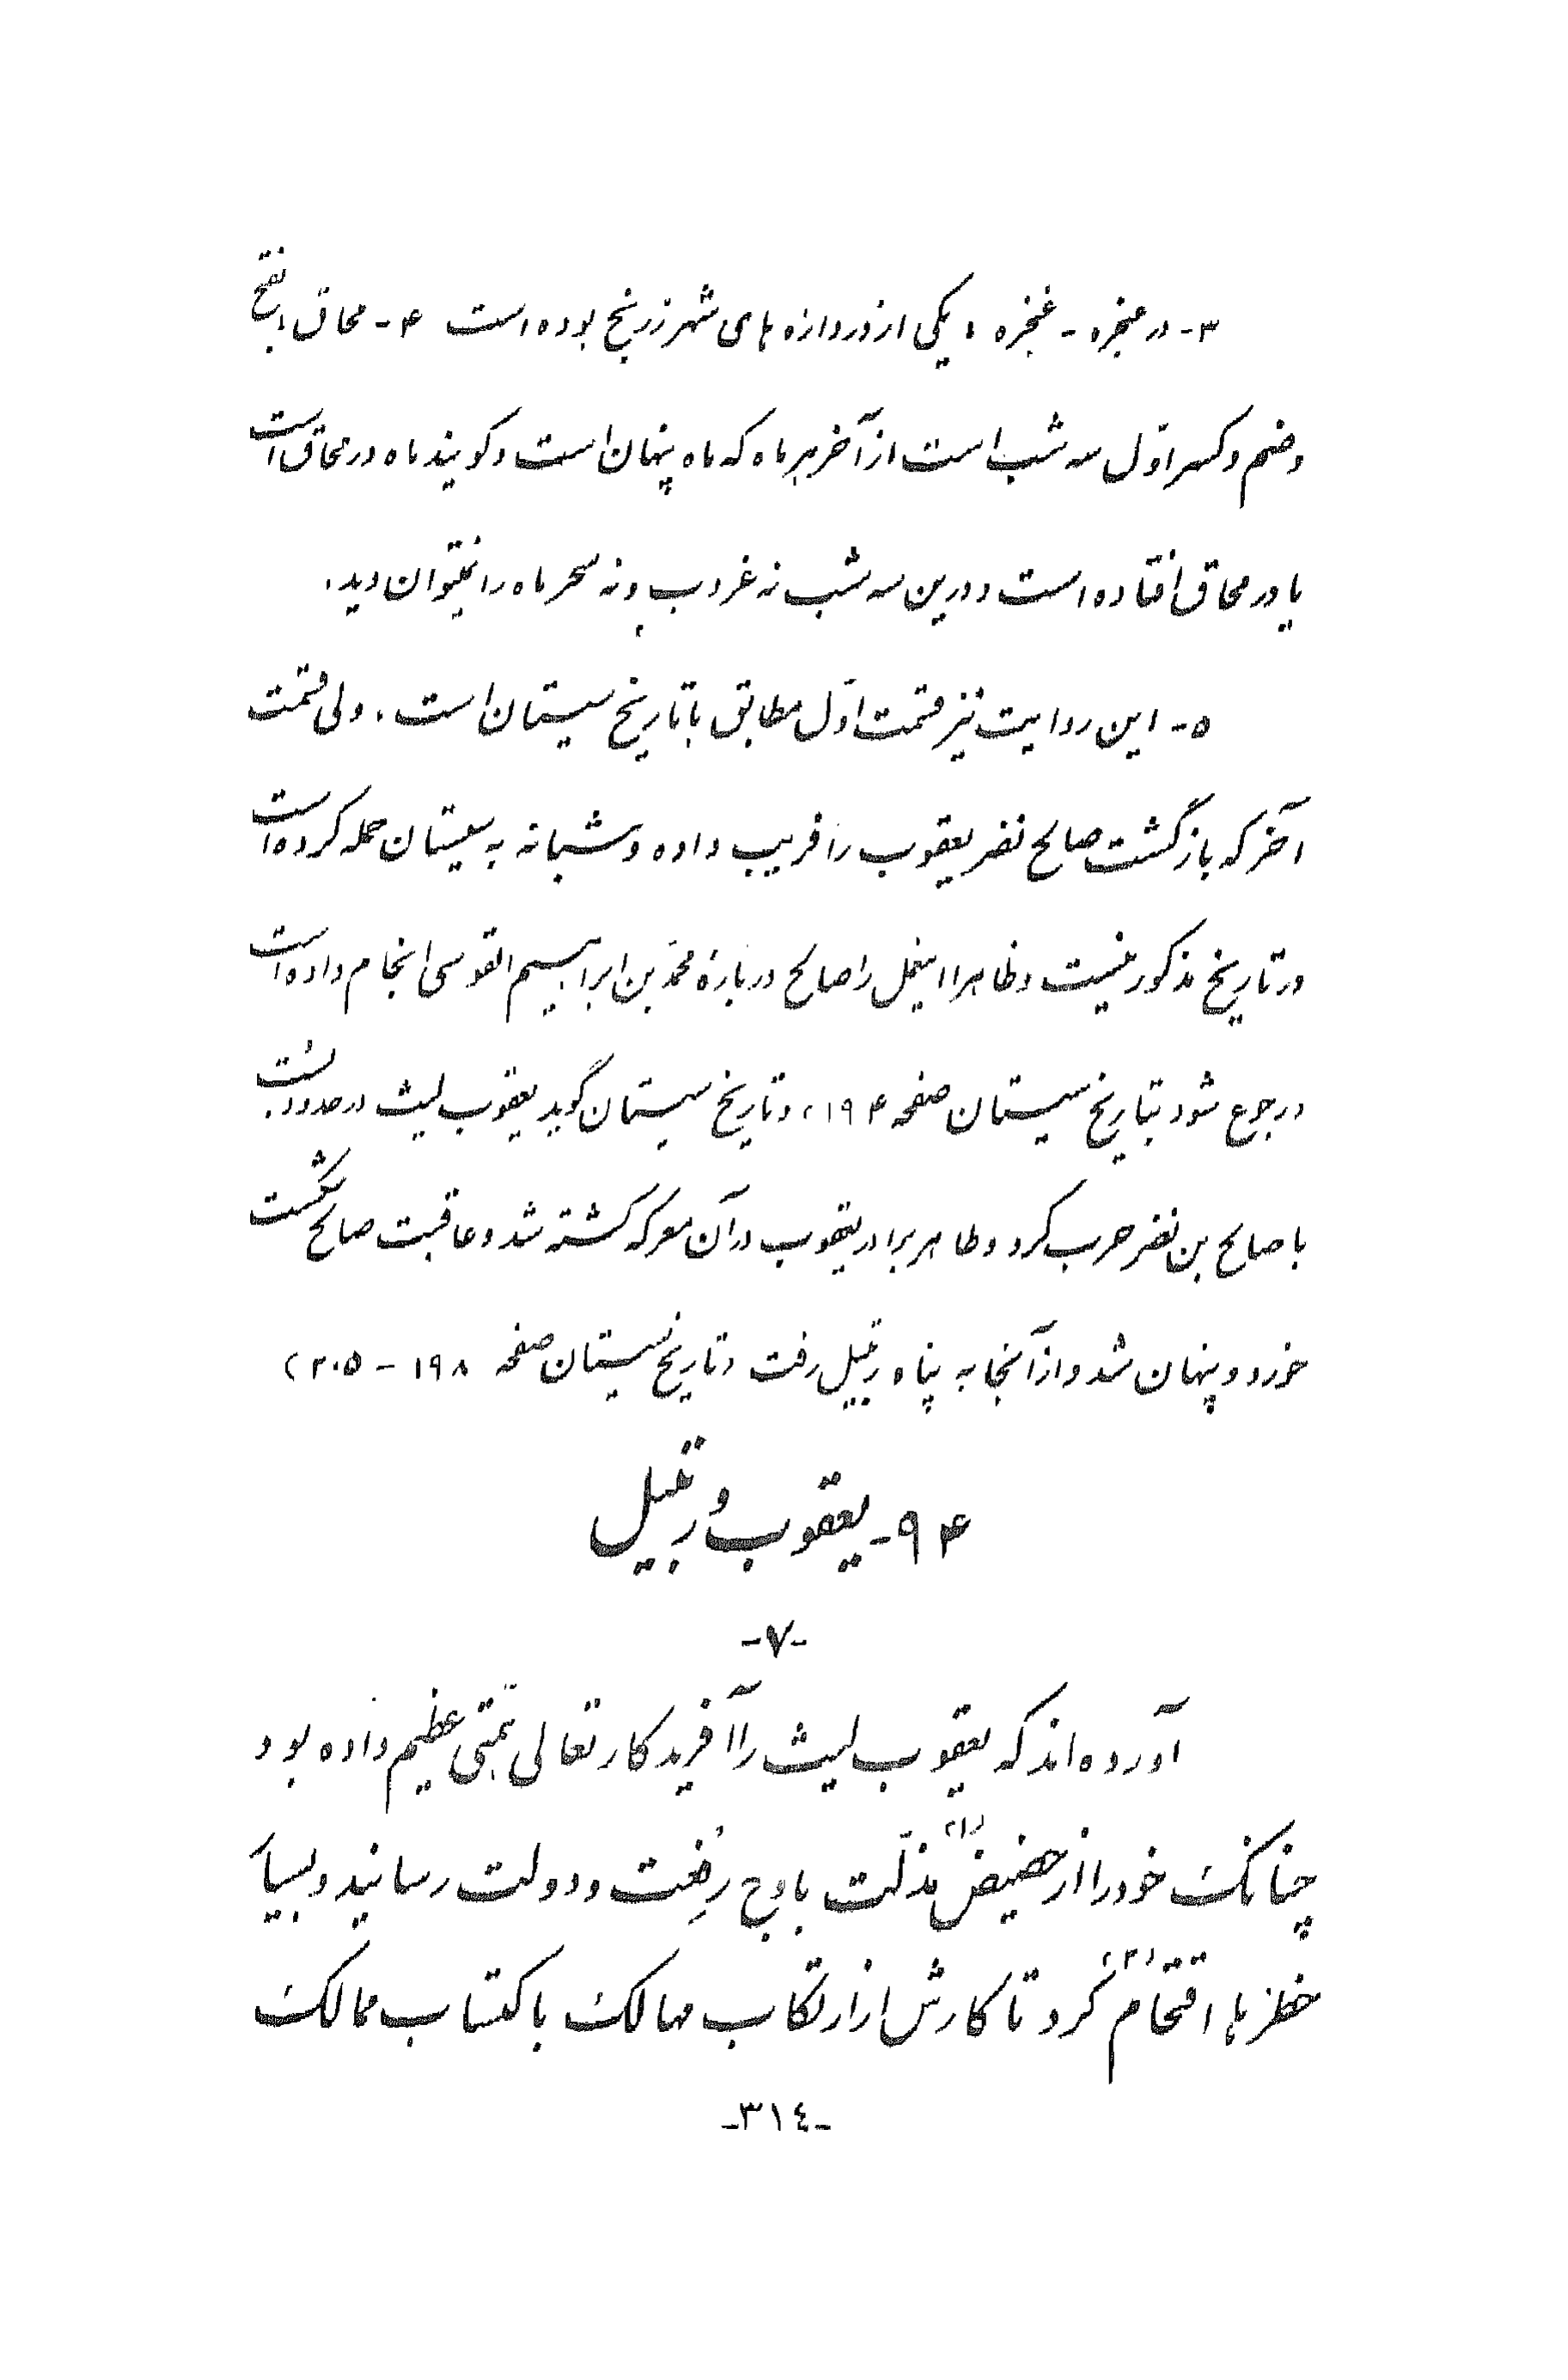 ۳- در منجره - غنجره ، یکی از دروازه های شهر زرنج بوده است ۴- محاق بفتح
و ضم و کسر اوّل سه شب است از آخر هر ماه که ماه پنهان است و گویند ماه در محاق است
یا در محاق افتاده است و درین سه شب نه غروب و نه سحر ماه را نمیتوان دید.
۵- این روایت نیز قسمت اوّل مطابق با تاریخ سیستان است، ولی قسمت
آخر که بازگشت صالح نضر یعقوب را فریب داده و شبانه به سیستان حمله کرده است
در تاریخ مذکور نیست و ظاهرا اینعمل را صالح دربارهٔ محمّد بن ابراهیم القوسی انجام داده است
(رجوع شود بتاریخ سیستان صفحه ۱۹۴) و تاریخ سیستان گوید یعقوب لیث در حدود بست
با صالح بن نضر حرب کرد و طاهر برادر یعقوب در آن معرکه کشته شد و عاقبت صالح شکست
خورد و پنهان شد و از آنجا به پناه رتبیل رفت (تاریخ سیستان صفحه ۱۹۸ - ۲۰۵)
۹۴- یعقوب و رتبیل
-۷-
آورده‌اند که یعقوب لیث را آفریدگار تعالی همّتی عظیم داده بود
چنانک خود را از حضیض (۱) مذلّت باوج رفعت و دولت رسانید و بسیار
خطرها اقتحام (۲) کرد تا کارش از ارتکاب مهالک باکتساب ممالک
-۳۱٤-